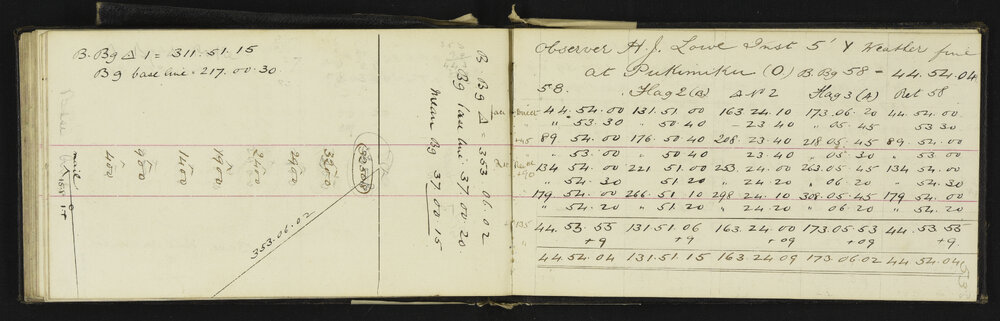 B. Bg Δ 1 = 311. 51. 15
Bg base line. 217. 00. 30
B Bg Δ = 353 06. 02
Bg base line. 37. 00. 20.
Mean Bg 37 00 15
3250.8
3200
2900
1900
1400
900
400
353. 06. 02
Observer H. J. Lowe Inst 5" Y Weather fine
at Pukimiku (O) B. Bg 58 - 44. 54. 04
58. Flag 2 (B) Δ No 2 Flag 3 (A) Ret 58
44. 54. 00 131. 51 00 163 24. 10 173. 06. 20 44. 54. 00
" 53. 30 " 50 40 - 23 40 " 05. 45 53 30
89 54. 00 176. 50 40 208. 23. 40 218 05. 45 89. 54. 00
" 53. 00 " 50 40 23. 40 " 05 30 " 53 00
134 54. 00 221 51. 00 253. 24. 00 263. 05 45 134 54. 00
" 54. 30 " 51 20 " 24. 20 " 06. 20 " 54. 30
179 54. 00 266. 51. 10 298 24. 10 308. 05. 45 179 54. 00
" 54. 20 " 51. 20 " 24. 20 " 06. 20 " 54. 20
44. 53. 55 131. 51. 06 163 24. 00 173. 05. 53 44. 53. 55
+ 9 + 9 + 09 + 09 + 9
44. 54. 04 131. 51. 15 163. 24 09 173. 06. 02 44. 54. 04